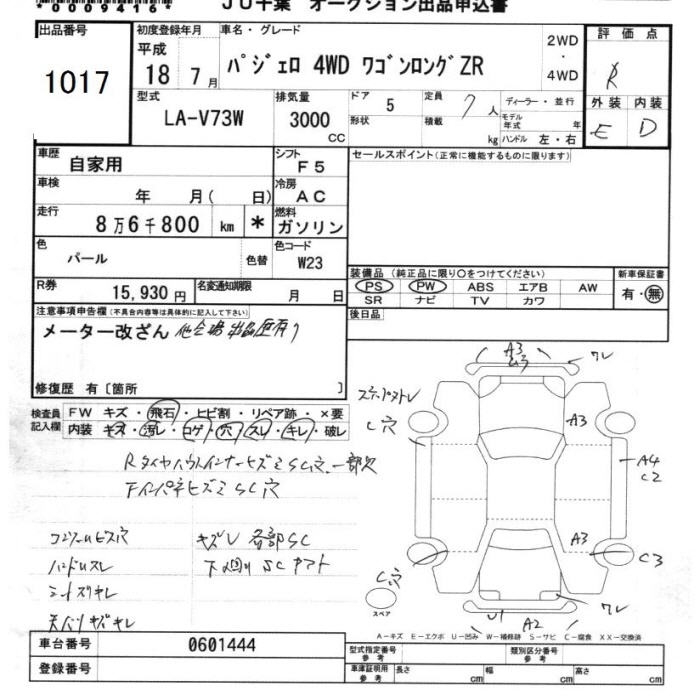 *00009416*
JU千葉 オークション出品申込書
出品番号
1017
初度登録年月
平成
18 7月
車名・グレード
パジェロ 4WD ワゴンロングZR
2WD
・
4WD
評価点
R
外装 内装
E D
型式
LA-V73W
排気量
3000
CC
ドア
5
定員
7人
形状
積載
kg
ディーラー・並行
モデル年式 年
ハンドル 左・右
車歴
自家用
シフト
F5
セールスポイント(正常に機能するものに限ります)
車検
年 月( 日)
冷房
AC
走行
8万6千800 km *
燃料
ガソリン
色
パール
色替
色コード
W23
R券
15,930円
名変通知期限
月 日
装備品(純正品に限り○をつけてください)
新車保証書
PS PW ABS エアB AW
SR ナビ TV カワ
有・無
後日品
注意事項申告欄(不具合内容等は具体的に記入して下さい)
メーター改ざん 他会場出品歴有り
修復歴 有〔箇所 〕
検査員
記入欄
FW キズ・飛石・ヒビ割・リペア跡・×要
内装 キズ・汚レ・コゲ・穴・スレ・キレ・破レ
RタイヤハウスインナーヒズミSC穴 一部欠
FインパネヒズミSC穴
コンソールビス穴
ハンドルスレ
シートスリキレ
天バリキズキレ
キズレ 各部SC
下廻り SC
A3
ワレ
C穴
A3
A4
C2
A3
C3
C穴
ワレ
U1
A2
スペア
A-キズ E-エクボ U-凹み W-補修跡 S-サビ C-腐食 XX-交換済
車台番号
0601444
登録番号
型式指定番号
参考
類別区分番号
参考
車庫証明用
参考
長さ cm 幅 cm 高さ cm